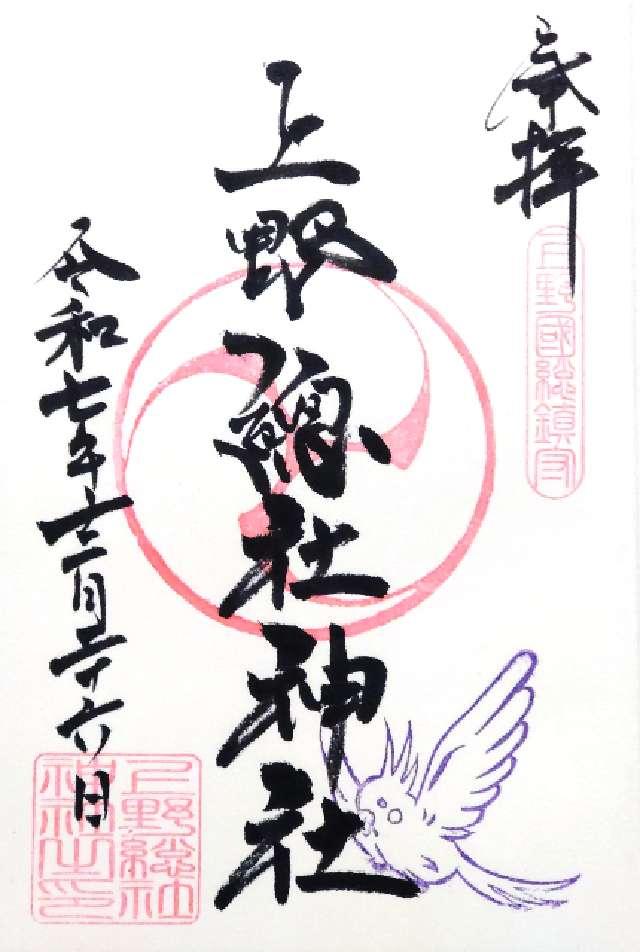 奉拝
上野國総鎮守
上野總社神社
令和七年十二月二十六日
上野総社
神社之印